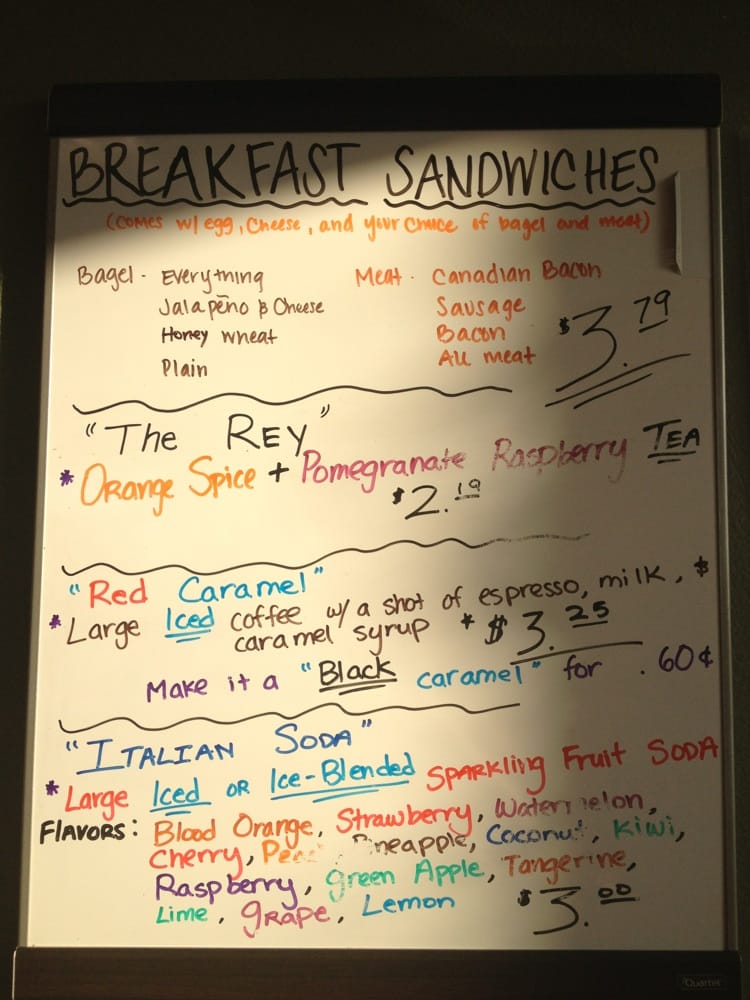 BREAKFAST SANDWICHES
(COMES w/ egg, Cheese, and your choice of bagel and meat)
Bagel - Everything
Jalapeño & Cheese
Honey wheat
Plain
Meat - Canadian Bacon
Sausage
Bacon
All meat
$3.79
"The REY"
* Orange Spice + Pomegranate Raspberry TEA
$2.19
"Red Caramel"
* Large Iced coffee w/ a shot of espresso, milk, &
caramel syrup * $3.25
Make it a "Black caramel" for .60¢
"ITALIAN SODA"
* Large Iced OR Ice-Blended SPARKling Fruit SODA
FLAVORS: Blood Orange, Strawberry, Watermelon,
Cherry, Pineapple, Coconut, Kiwi,
Raspberry, Green Apple, Tangerine,
Lime, GRAPE, Lemon
$3.00
Quartet